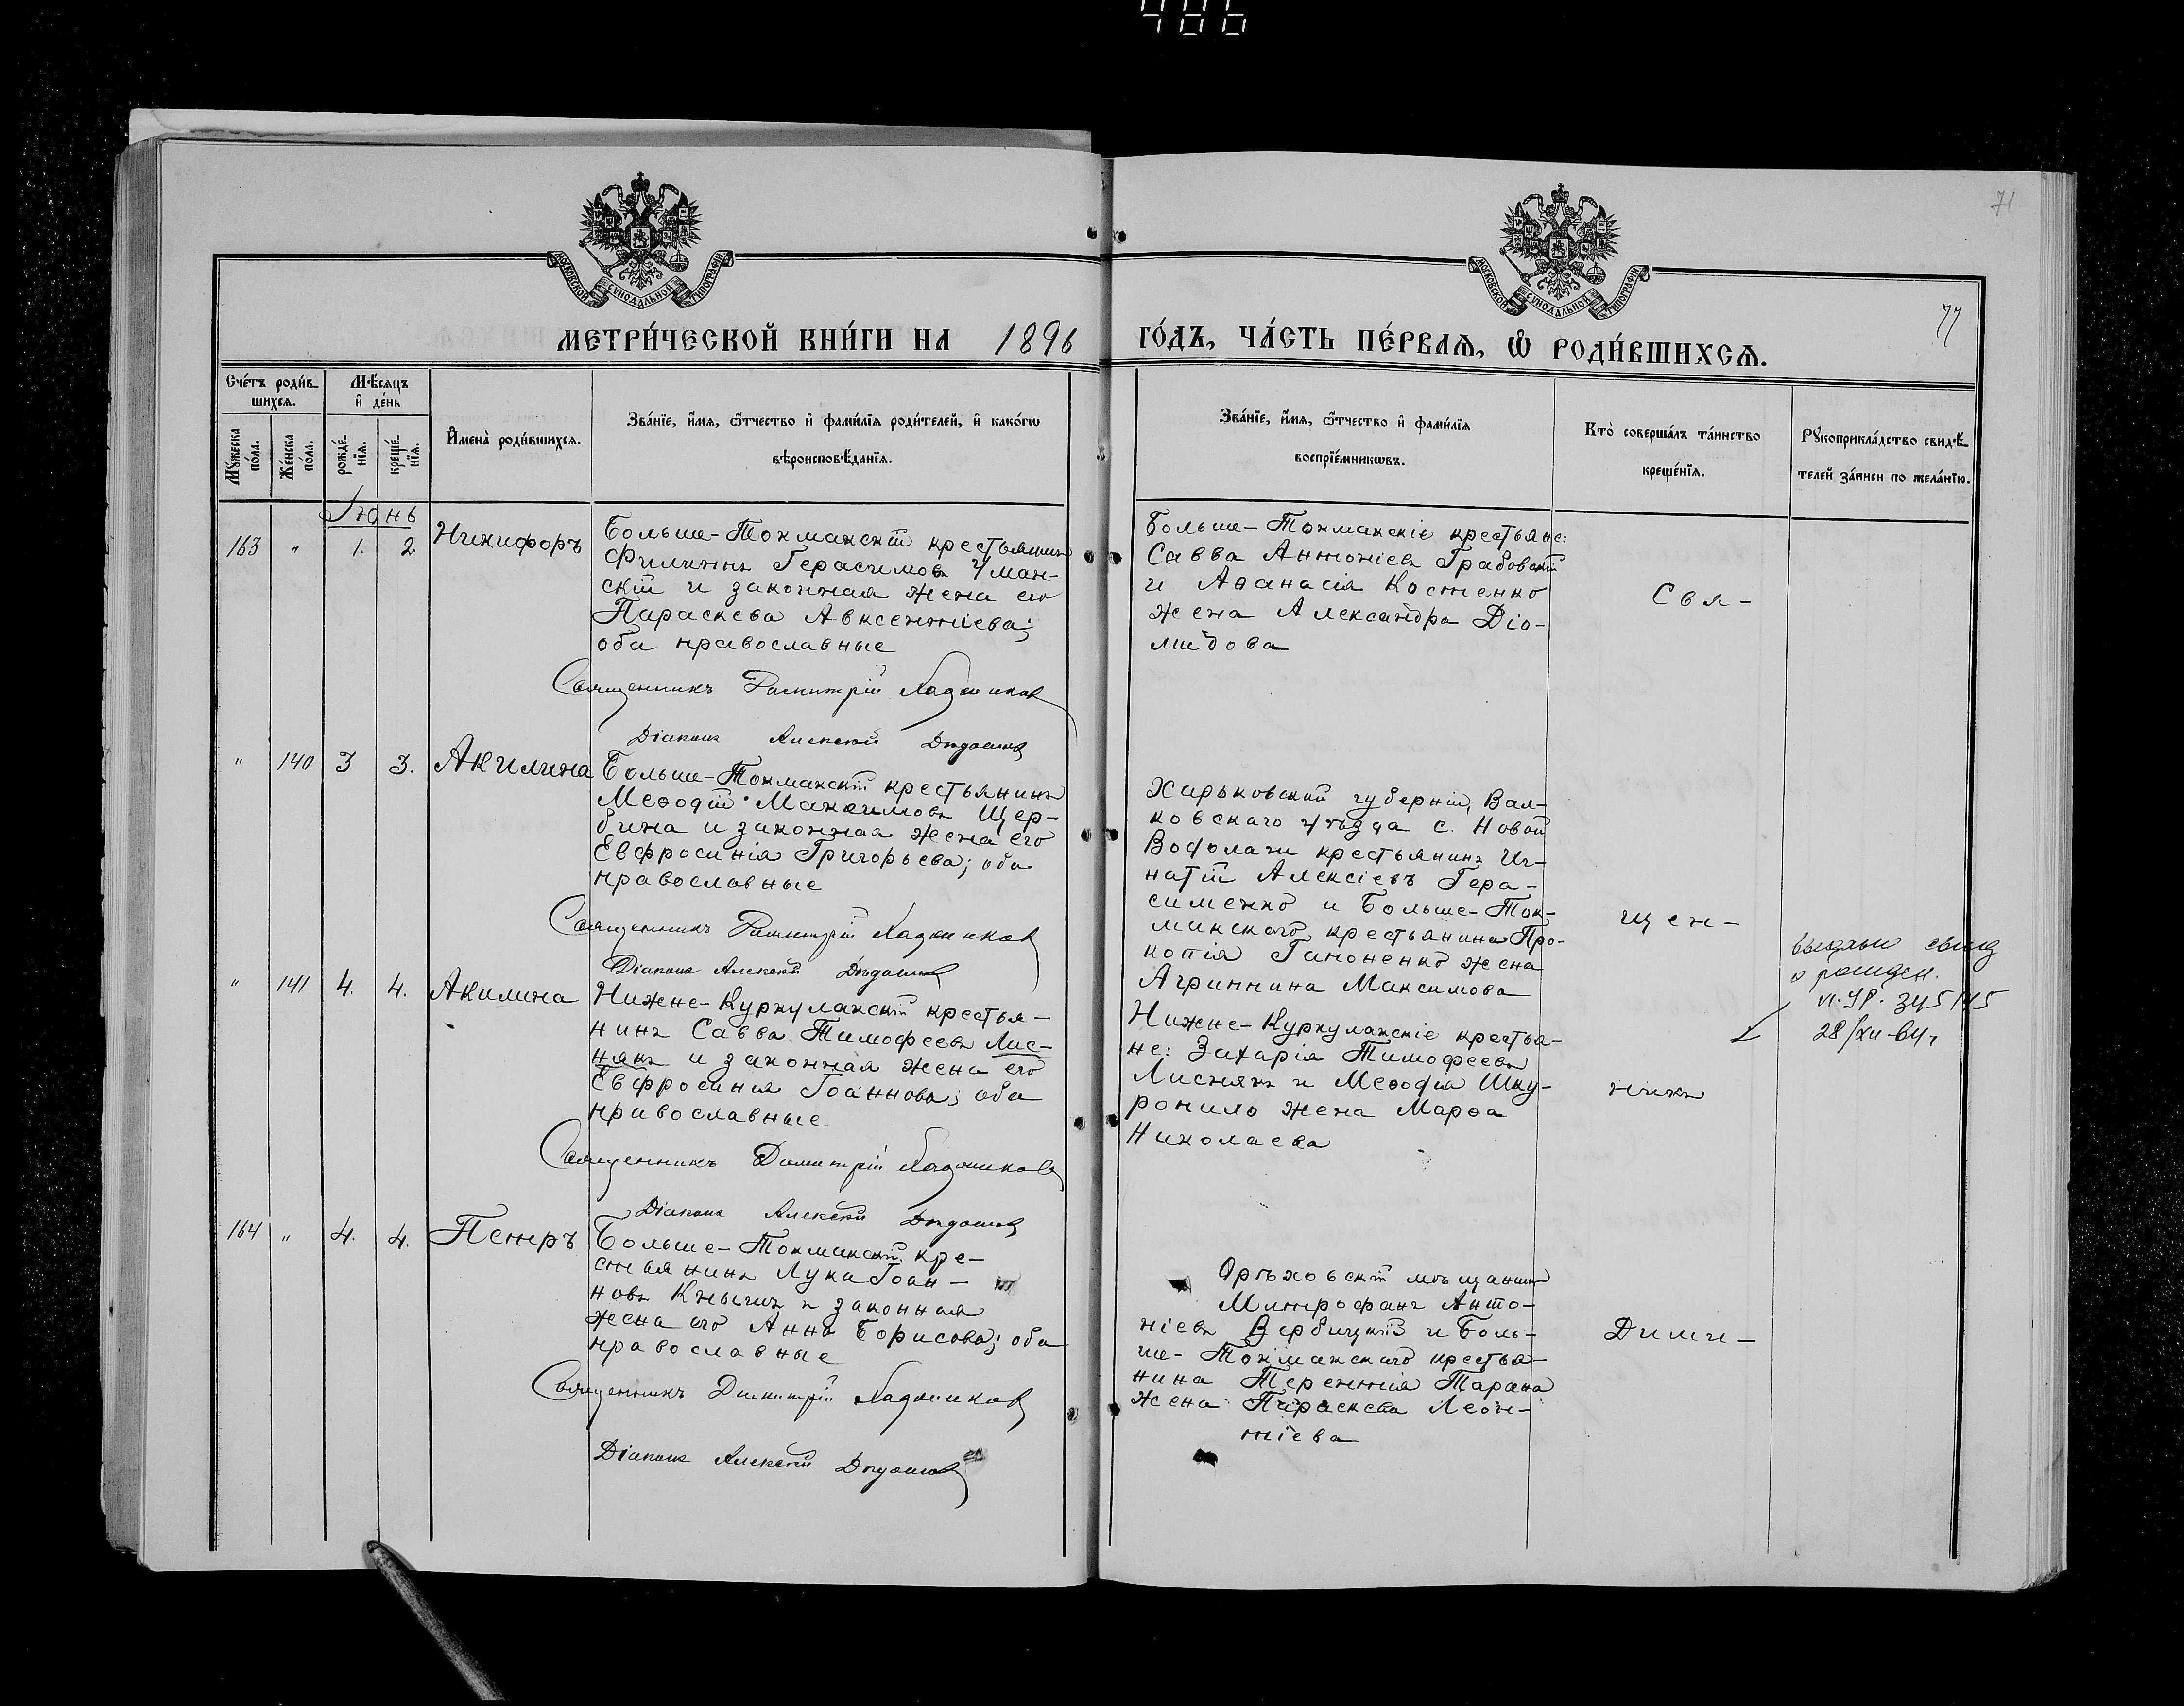 486
71
77
МОСКОВСКОЙ СѴНОДАЛЬНОЙ ТИПОГРАФІИ
МОСКОВСКОЙ СѴНОДАЛЬНОЙ ТИПОГРАФІИ
МЕТРИ́ЧЕСКОЙ КНИ́ГИ НА 1896 ГО́ДЪ, ЧА́СТЬ ПЕ́РВАѦ, Ѡ҆ РОДИ́ВШИХСѦ.
Сче́тъ роди́в-
шихсѧ.
Мѣ́сѧцъ
и҆ де́нь
Мꙋ́жеска
по́ла.
Же́нска
по́ла.
рожде́-
нїѧ.
креще́-
нїѧ.
И҆мена̀ роди́вшихсѧ.
Зва́нїе, и҆́мѧ, ѻ҆́тчество и҆ фами́лїѧ роди́телей, и҆ како́гѡ
вѣроисповѣ́данїѧ.
Зва́нїе, и҆́мѧ, ѻ҆́тчество и҆ фами́лїѧ
воспрїе́мникѡвъ.
Кто̀ соверша́лъ та́инство
креще́нїѧ.
Рꙋкоприкла́дство свидѣ́-
телей за́писи по жела́нїю.
Іюнь
163 " 1. 2. Никифоръ
Больше-Токмакскій крестьянинъ
Филиппъ Герасимовъ Уман-
скій и законная жена его
Параскева Авксентіева;
оба православные
Священникъ Димитрій Ладшиковъ
Діаконъ Алексій
Больше-Токмакскіе крестьяне:
Савва Антоніевъ Грабовскій
и Аѳанасія Костенко
жена Александра Діо-
мидова
Свя-
" 140 3 3. Акилина
Больше-Токмакскій крестьянинъ
Меѳодій Максимовъ Щер-
бина и законная жена его
Евфросинія Григорьева; оба
православные
Священникъ Димитрій Ладшиковъ
Діаконъ Алексій
Харьковской губерніи, Вал-
ковскаго уѣзда с. Новой
Водолаги крестьянинъ Иг-
натій Алексіевъ Гера-
сименко и Больше-Ток-
макскаго крестьянина Про-
копія Гапоненко жена
Агриппина Максимова
щен-
" 141 4. 4. Акилина
Нижне-Куркулакскій крестья-
нинъ Савва Тимофеевъ Лис-
някъ и законная жена его
Евфросинія Іоаннова; оба
православные
Священникъ Димитрій Ладшиковъ
Діаконъ Алексій
Нижне-Куркулакскіе крестья-
не: Захарія Тимофеевъ
Лиснякъ и Меѳодія Шку-
ропило жена Марѳа
Николаева
никъ
о рожден.
28/XII-64г
164 " 4. 4. Петръ
Больше-Токмакскій кре-
стьянинъ Лука Іоан-
новъ Кнышъ и законная
жена его Анна Борисова; оба
православные
Священникъ Димитрій Ладшиковъ
Діаконъ Алексій
Орѣховскій мѣщанинъ
Митрофанъ Анто-
ніевъ Вербицкій и Боль-
ше-Токмакскаго крестья-
нина Терентія Тарана
жена Параскева Леон-
тіева
Дими-